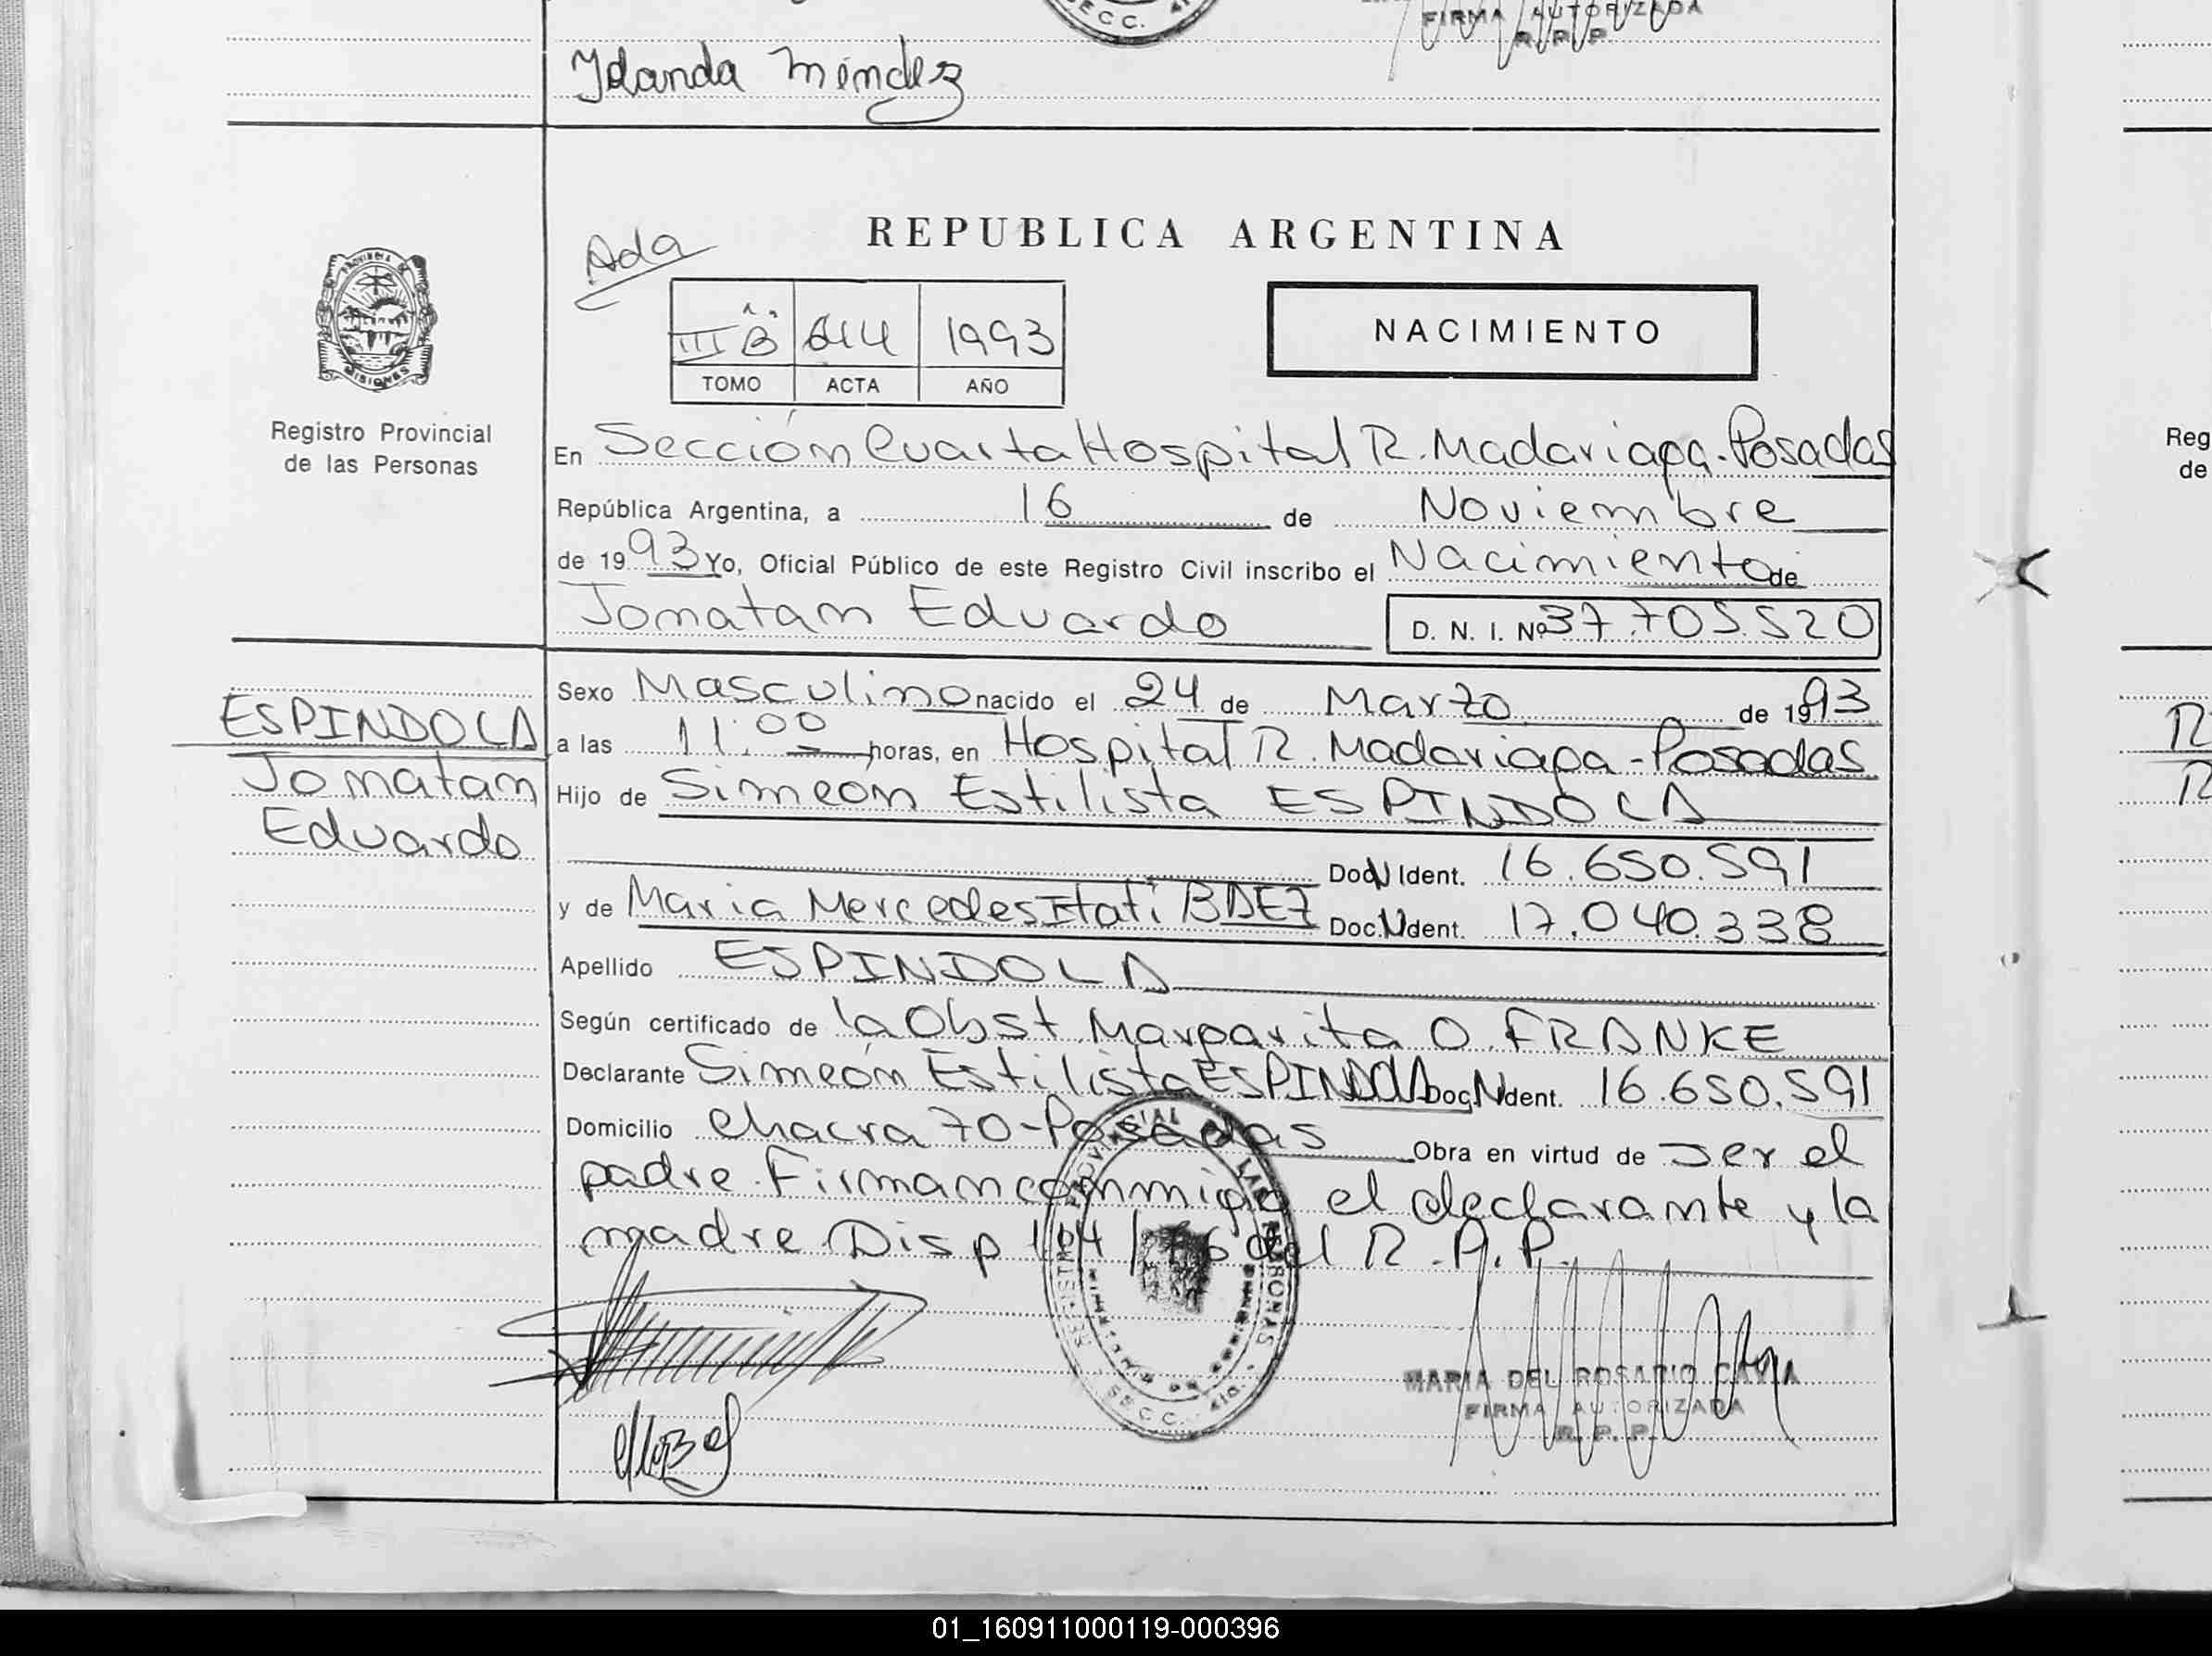 SECC. 4
FIRMA AUTORIZADA
R. P. P.
Yolanda Méndez
REPUBLICA ARGENTINA
Ada
PROVINCIA DE
MISIONES
III B 1993
TOMO ACTA AÑO
NACIMIENTO
Registro Provincial
de las Personas
En Sección Cuarta Hospital R. Madariaga-Posadas
República Argentina, a 16 de Noviembre
de 1993 Yo, Oficial Público de este Registro Civil inscribo el Nacimiento de
Jonatan Eduardo D. N. I. Nº 37.705.520
ESPINDOLA
Jonatan
Eduardo
Sexo Masculino nacido el 24 de Marzo de 1993
a las 11:00 horas, en Hospital R. Madariaga-Posadas
Hijo de Simeón Estilista ESPINDOLA
Doc N Ident. 16.650.591
y de Maria Mercedes Itati BAEZ Doc. N Ident. 17.040.338
Apellido ESPINDOLA
Según certificado de la Obst. Margarita O. FRANKE
Declarante Simeón Estilista ESPINDOLA Doc. N Ident. 16.650.591
Domicilio Chacra 70-Posadas Obra en virtud de ser el
padre. Firman conmigo el declarante y la
madre Disp 104/ del R.P.P.
REGISTRO PROVINCIAL LAS PERSONAS
SECC. 4ta.
MARIA DEL ROSARIO CAVIA
FIRMA AUTORIZADA
R. P. P.
Reg
de
01_160911000119-000396